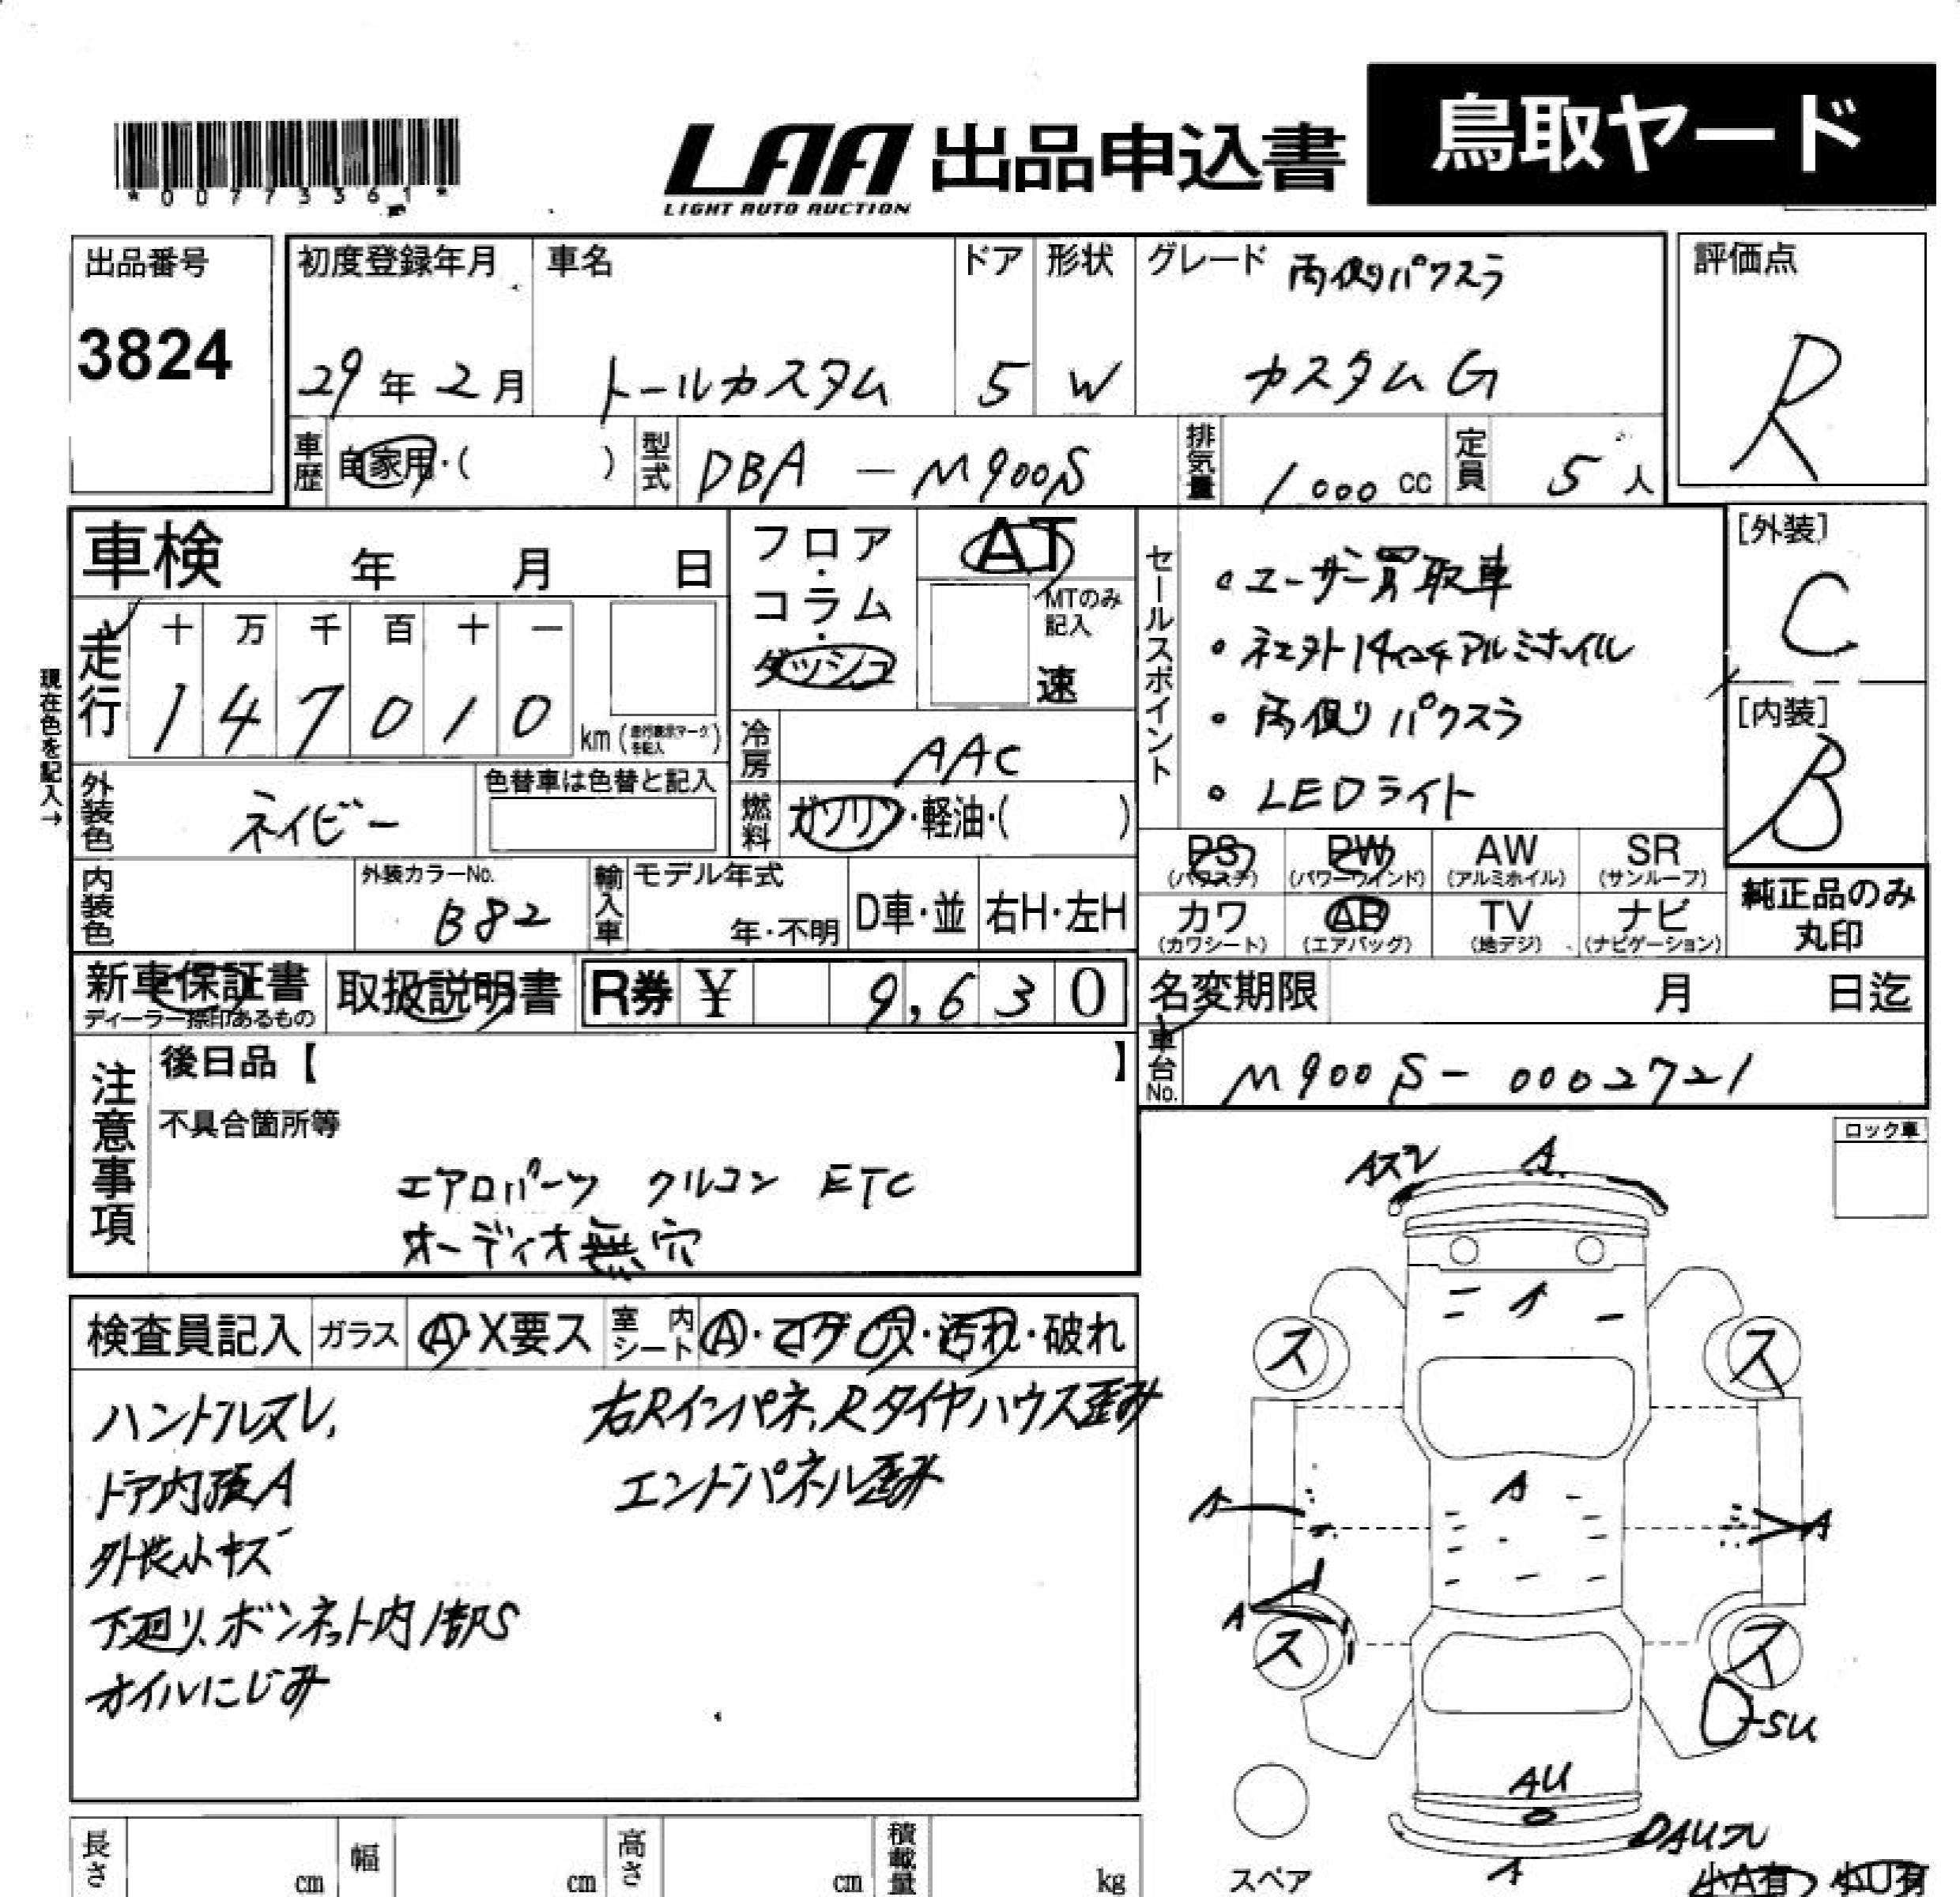 *00773361*
LAA 出品申込書 鳥取ヤード
LIGHT AUTO AUCTION
出品番号 初度登録年月 車名 ドア 形状 グレード 両側パワスラ 評価点
3824 29年2月 トールカスタム 5 W カスタムG R
車歴 自家用・( ) 型式 DBA - M900S 排気量 1000cc 定員 5人
車検 年 月 日 フロア・コラム・ダッシュ AT MTのみ記入 速
セールスポイント
・ユーザー買取車
・社外14インチアルミホイル
・両側パワスラ
・LEDライト
[外装] C
[内装] B
現在色を記入→
走行 十 万 千 百 十 一
147010 km (走行表示マークを記入)
冷房 AAC
外装色 ネイビー 色替車は色替と記入 燃料 ガソリン・軽油・( )
PS (パワステ) PW (パワーウインド) AW (アルミホイル) SR (サンルーフ)
カワ (カワシート) AB (エアバッグ) TV (地デジ) ナビ (ナビゲーション)
純正品のみ丸印
内装色 外装カラーNo. B82 輸入車 モデル年式 年・不明 D車・並 右H・左H
新車保証書 ディーラー捺印あるもの 取扱説明書 R券 ¥ 9,630 名変期限 月 日迄
車台No. M900S- 0002721
注意事項 後日品【 】
不具合箇所等
エアロパーツ クルコン ETC
オーディオ無 穴
ロック車
検査員記入 ガラス A・X要ス 室内シート A・コゲ・穴・汚れ・破れ
ハンドルスレ、 右Rインパネ、Rタイヤハウス歪み
ドア内張A エンドパネル歪み
外装小キズ
下廻り、ボンネット内1部S
オイルにじみ
Aスレ A
A
ス ス
A
A A
A
ス ス
SU
AU
DAUスレ
A
スペア
小A有 小U有
長さ cm 幅 cm 高さ cm 積載量 kg